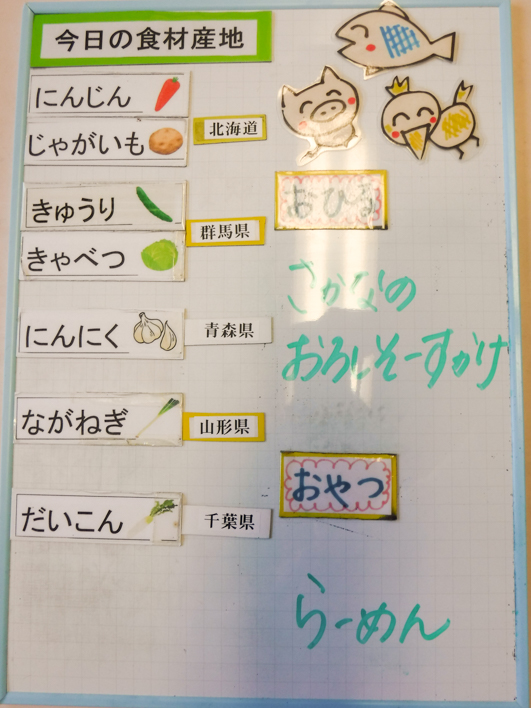 今日の食材産地
にんじん
じゃがいも
北海道
きゅうり
きゃべつ
群馬県
にんにく
青森県
ながねぎ
山形県
だいこん
千葉県
おひる
さかなの
おろしそーすかけ
おやつ
らーめん